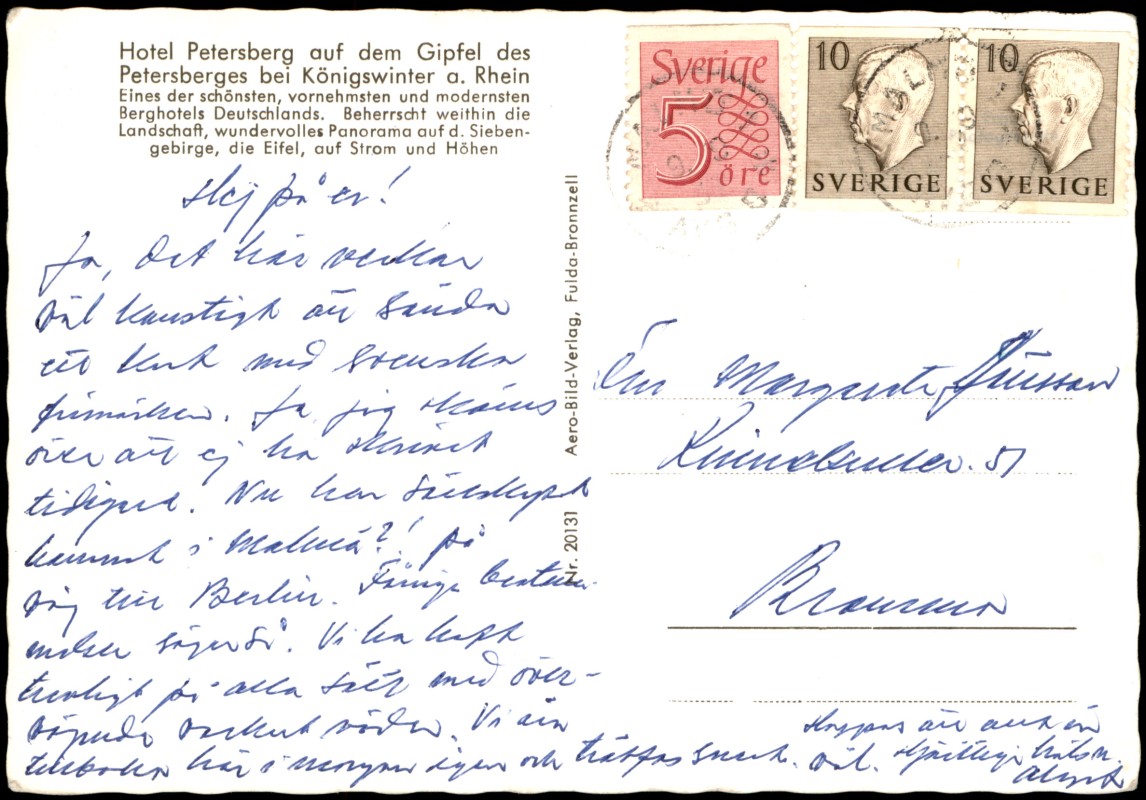 Hotel Petersberg auf dem Gipfel des
Petersberges bei Königswinter a. Rhein
Eines der schönsten, vornehmsten und modernsten
Berghotels Deutschlands. Beherrscht weithin die
Landschaft, wundervolles Panorama auf d. Sieben-
gebirge, die Eifel, auf Strom und Höhen
Hej på er!
Ja, det här verkar
väl konstigt att sända
ett kort med svenska
frimärken. Ja, jag skäms
över att ej ha skrivit
tidigare. Nu har sällskapet
kommit i Malmö?! på
väg till Berlin.
sager så. Vi ha haft
trevligt på alla sätt med över-
vägande vackert väder. Vi är
tillbaka här i morgon igen och träffas snart.
Nr. 20131 Aero-Bild-Verlag, Fulda-Bronnzell
Sverige
5
öre
10
SVERIGE
10
SVERIGE
Margareta
51
Bromma
Hoppas att allt är
väl. Hjärtliga hälsn.